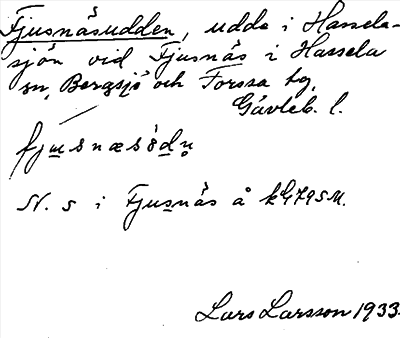 Fjusnäsudden, udde i Hassela-
sjön vid Fjusnäs i Hassela
sn, Bergsjö och Forssa tg,
Gävleb. l.
fjusnæsòdṇ
N. s i Fjusnäs å kG795M.
Lars Larsson 1933.